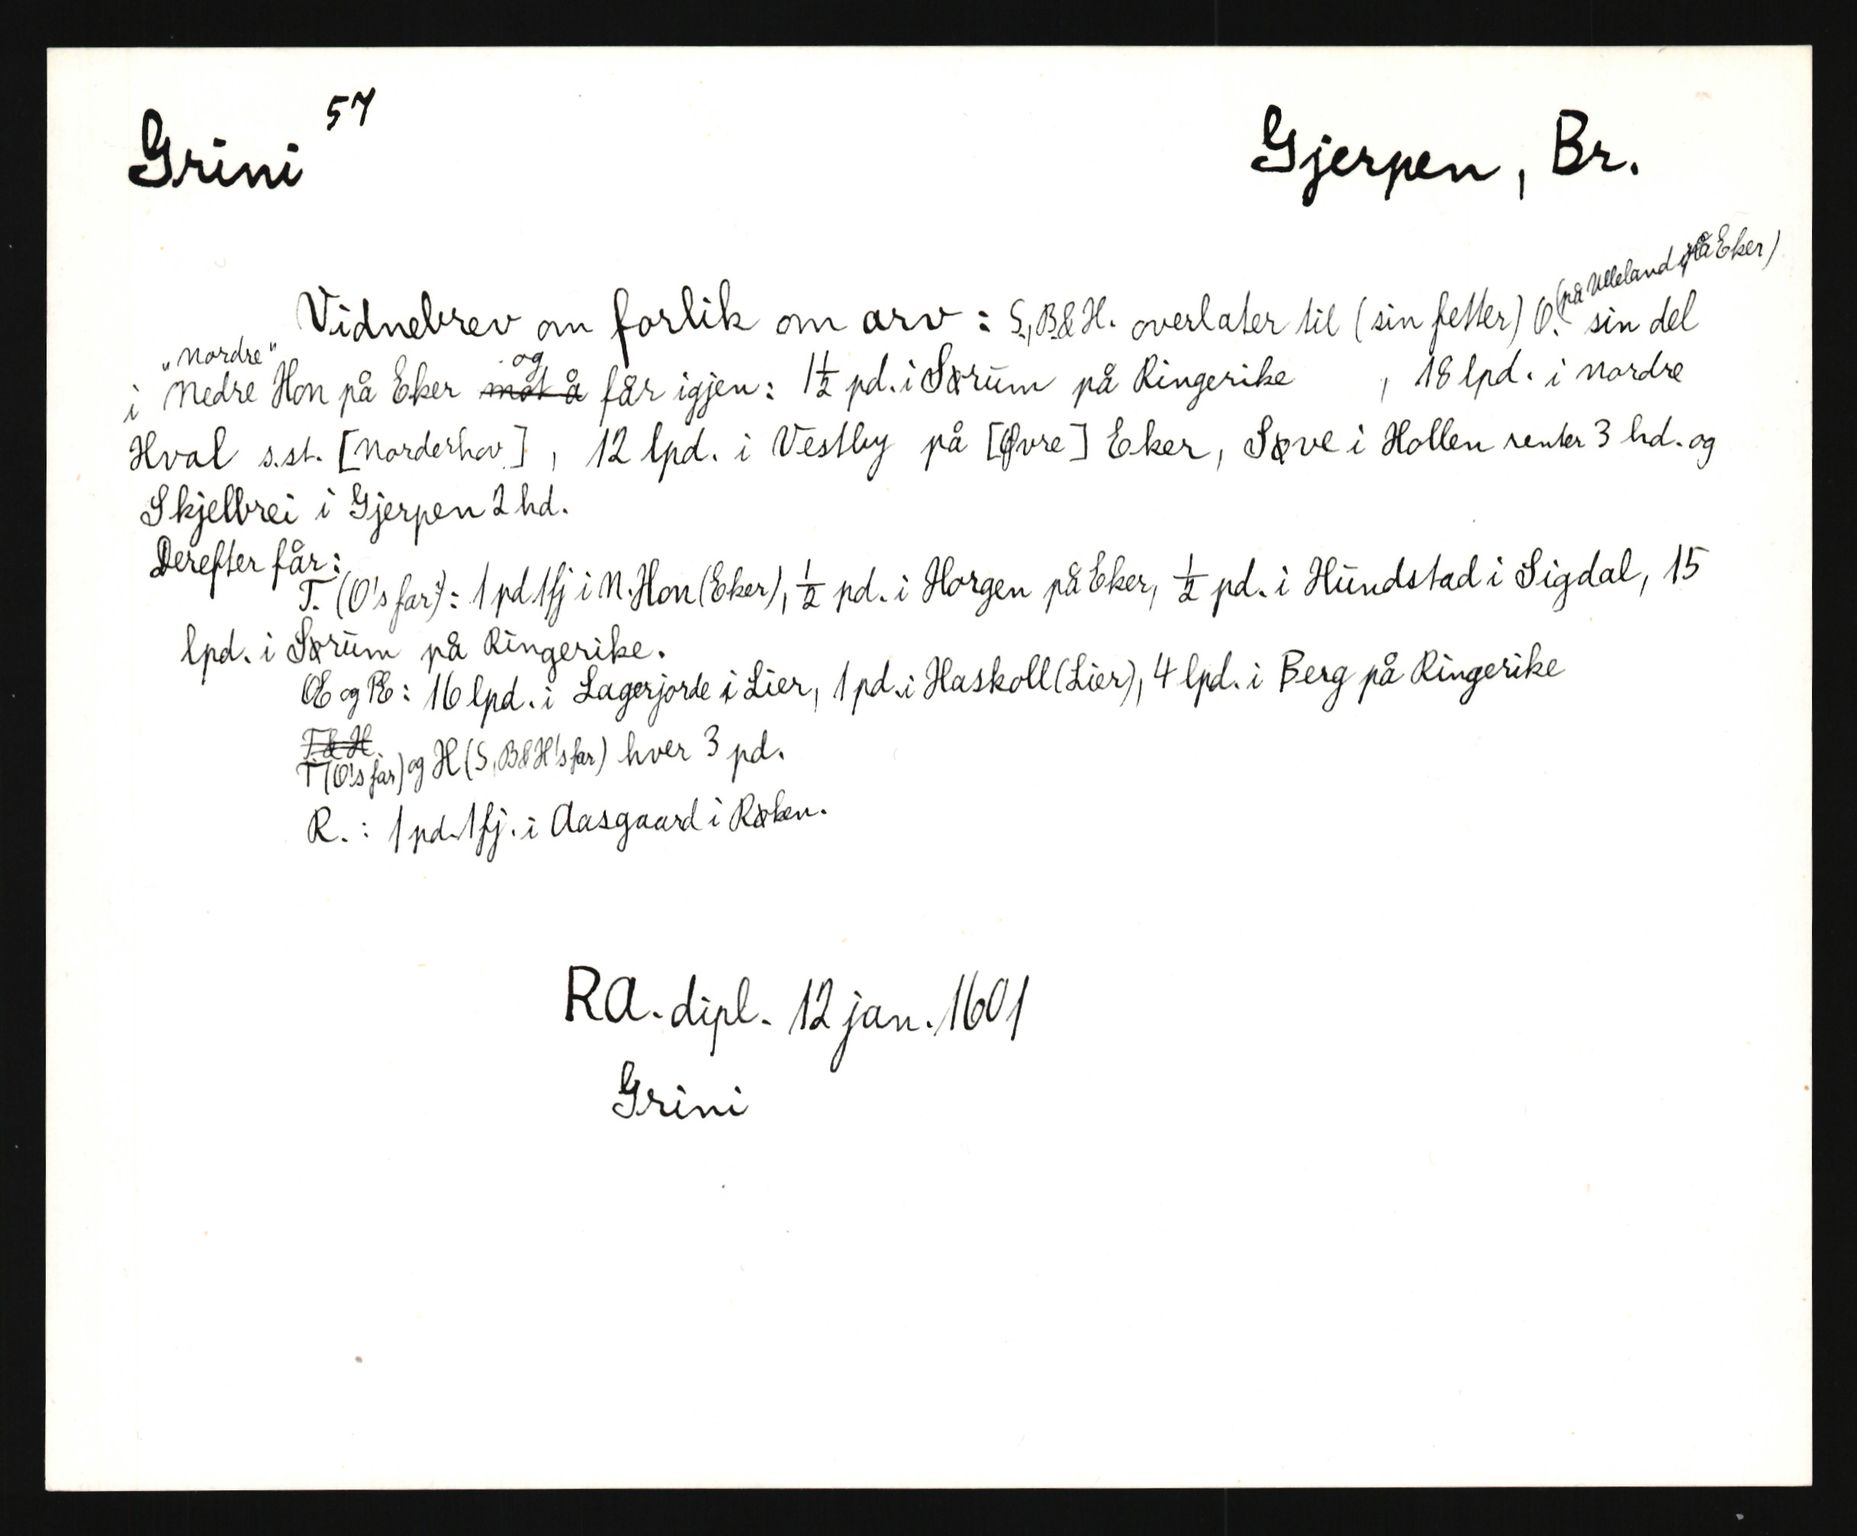 Grini 57
Gjerpen, Br.
Vidnebrev om forlik om arv: S, B & H. overlater til (sin fetter) O. (på Ulleland på Eker) sin del
i "Nordre" Nedre Hon på Eker ~~mot å~~ og får igjen: 1½ pd. i Sørum på Ringerike , 18 lpd. i nordre
Hval s.st. [Norderhov], 12 lpd. i Vestby på [Øvre] Eker, Søve i Hollen renter 3 hd. og
Skjelbrei i Gjerpen 2 hd.
Derefter får:
T. (O's far): 1 pd 1 fj i N. Hon (Eker), ½ pd. i Horgen på Eker, ½ pd. i Hundstad i Sigdal, 15
lpd. i Sørum på Ringerike.
OE og PE: 16 lpd. i Lagerjorde i Lier, 1 pd. i Haskoll (Lier), 4 lpd. i Berg på Ringerike
~~T & H~~
T (O's far) og H (S, B & H's far) hver 3 pd.
R.: 1 pd. 1 fj. i Aasgaard i Røken.
RA. dipl. 12 jan. 1601
Grini